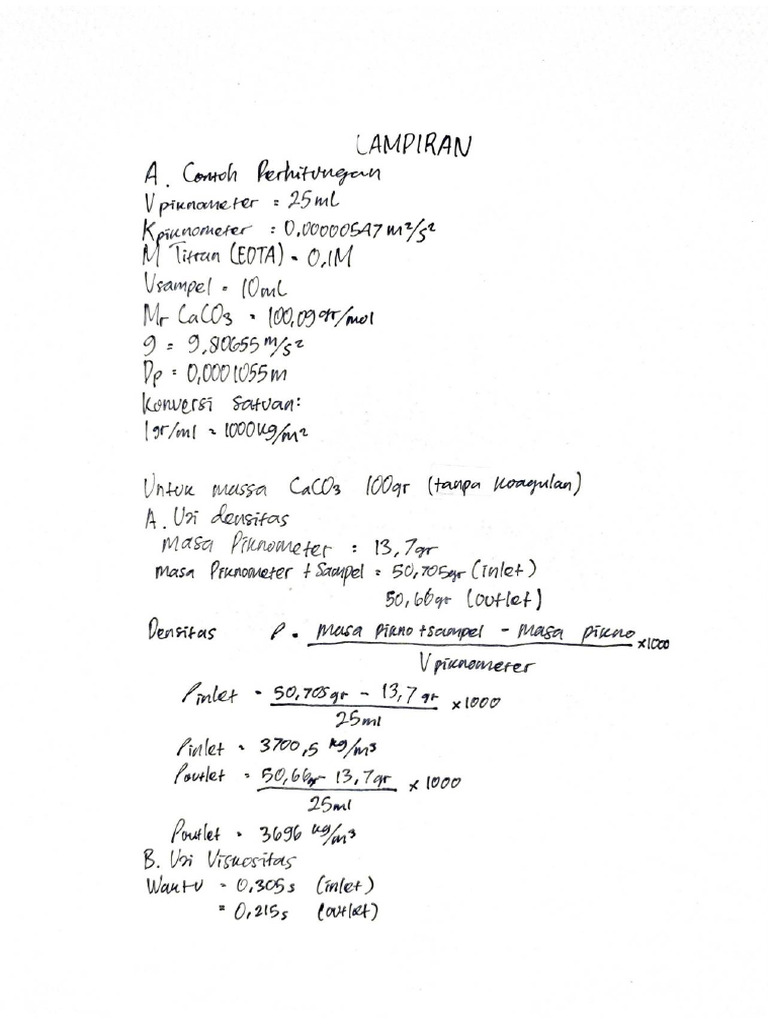 LAMPIRAN
A. Contoh Perhitungan
V piknometer = 25 ml
Kpiknometer = 0,00000547 m²/s²
M Titran (EDTA) = 0,1M
Vsampel = 10 ml
Mr CaCO3 = 100,09 gr/mol
g = 9,80655 m/s²
Dp = 0,0001055 m
Konversi Satuan:
1 gr/ml = 1000 kg/m²
Untuk massa CaCO3 100gr (tanpa koagulan)
A. Uji densitas
Masa Piknometer = 13,7gr
masa Piknometer + Sampel = 50,705gr (inlet)
50,66gr (outlet)
Densitas ρ = masa pikno + sampel - masa pikno x1000
V piknometer
ρinlet = 50,705 gr - 13,7 gr x 1000
25 ml
ρinlet = 3700,5 kg/m³
ρoutlet = 50,66gr - 13,7gr x 1000
25 ml
ρoutlet = 3696 kg/m³
B. Uji Viskositas
Waktu = 0,305 s (inlet)
= 0,215 s (outlet)